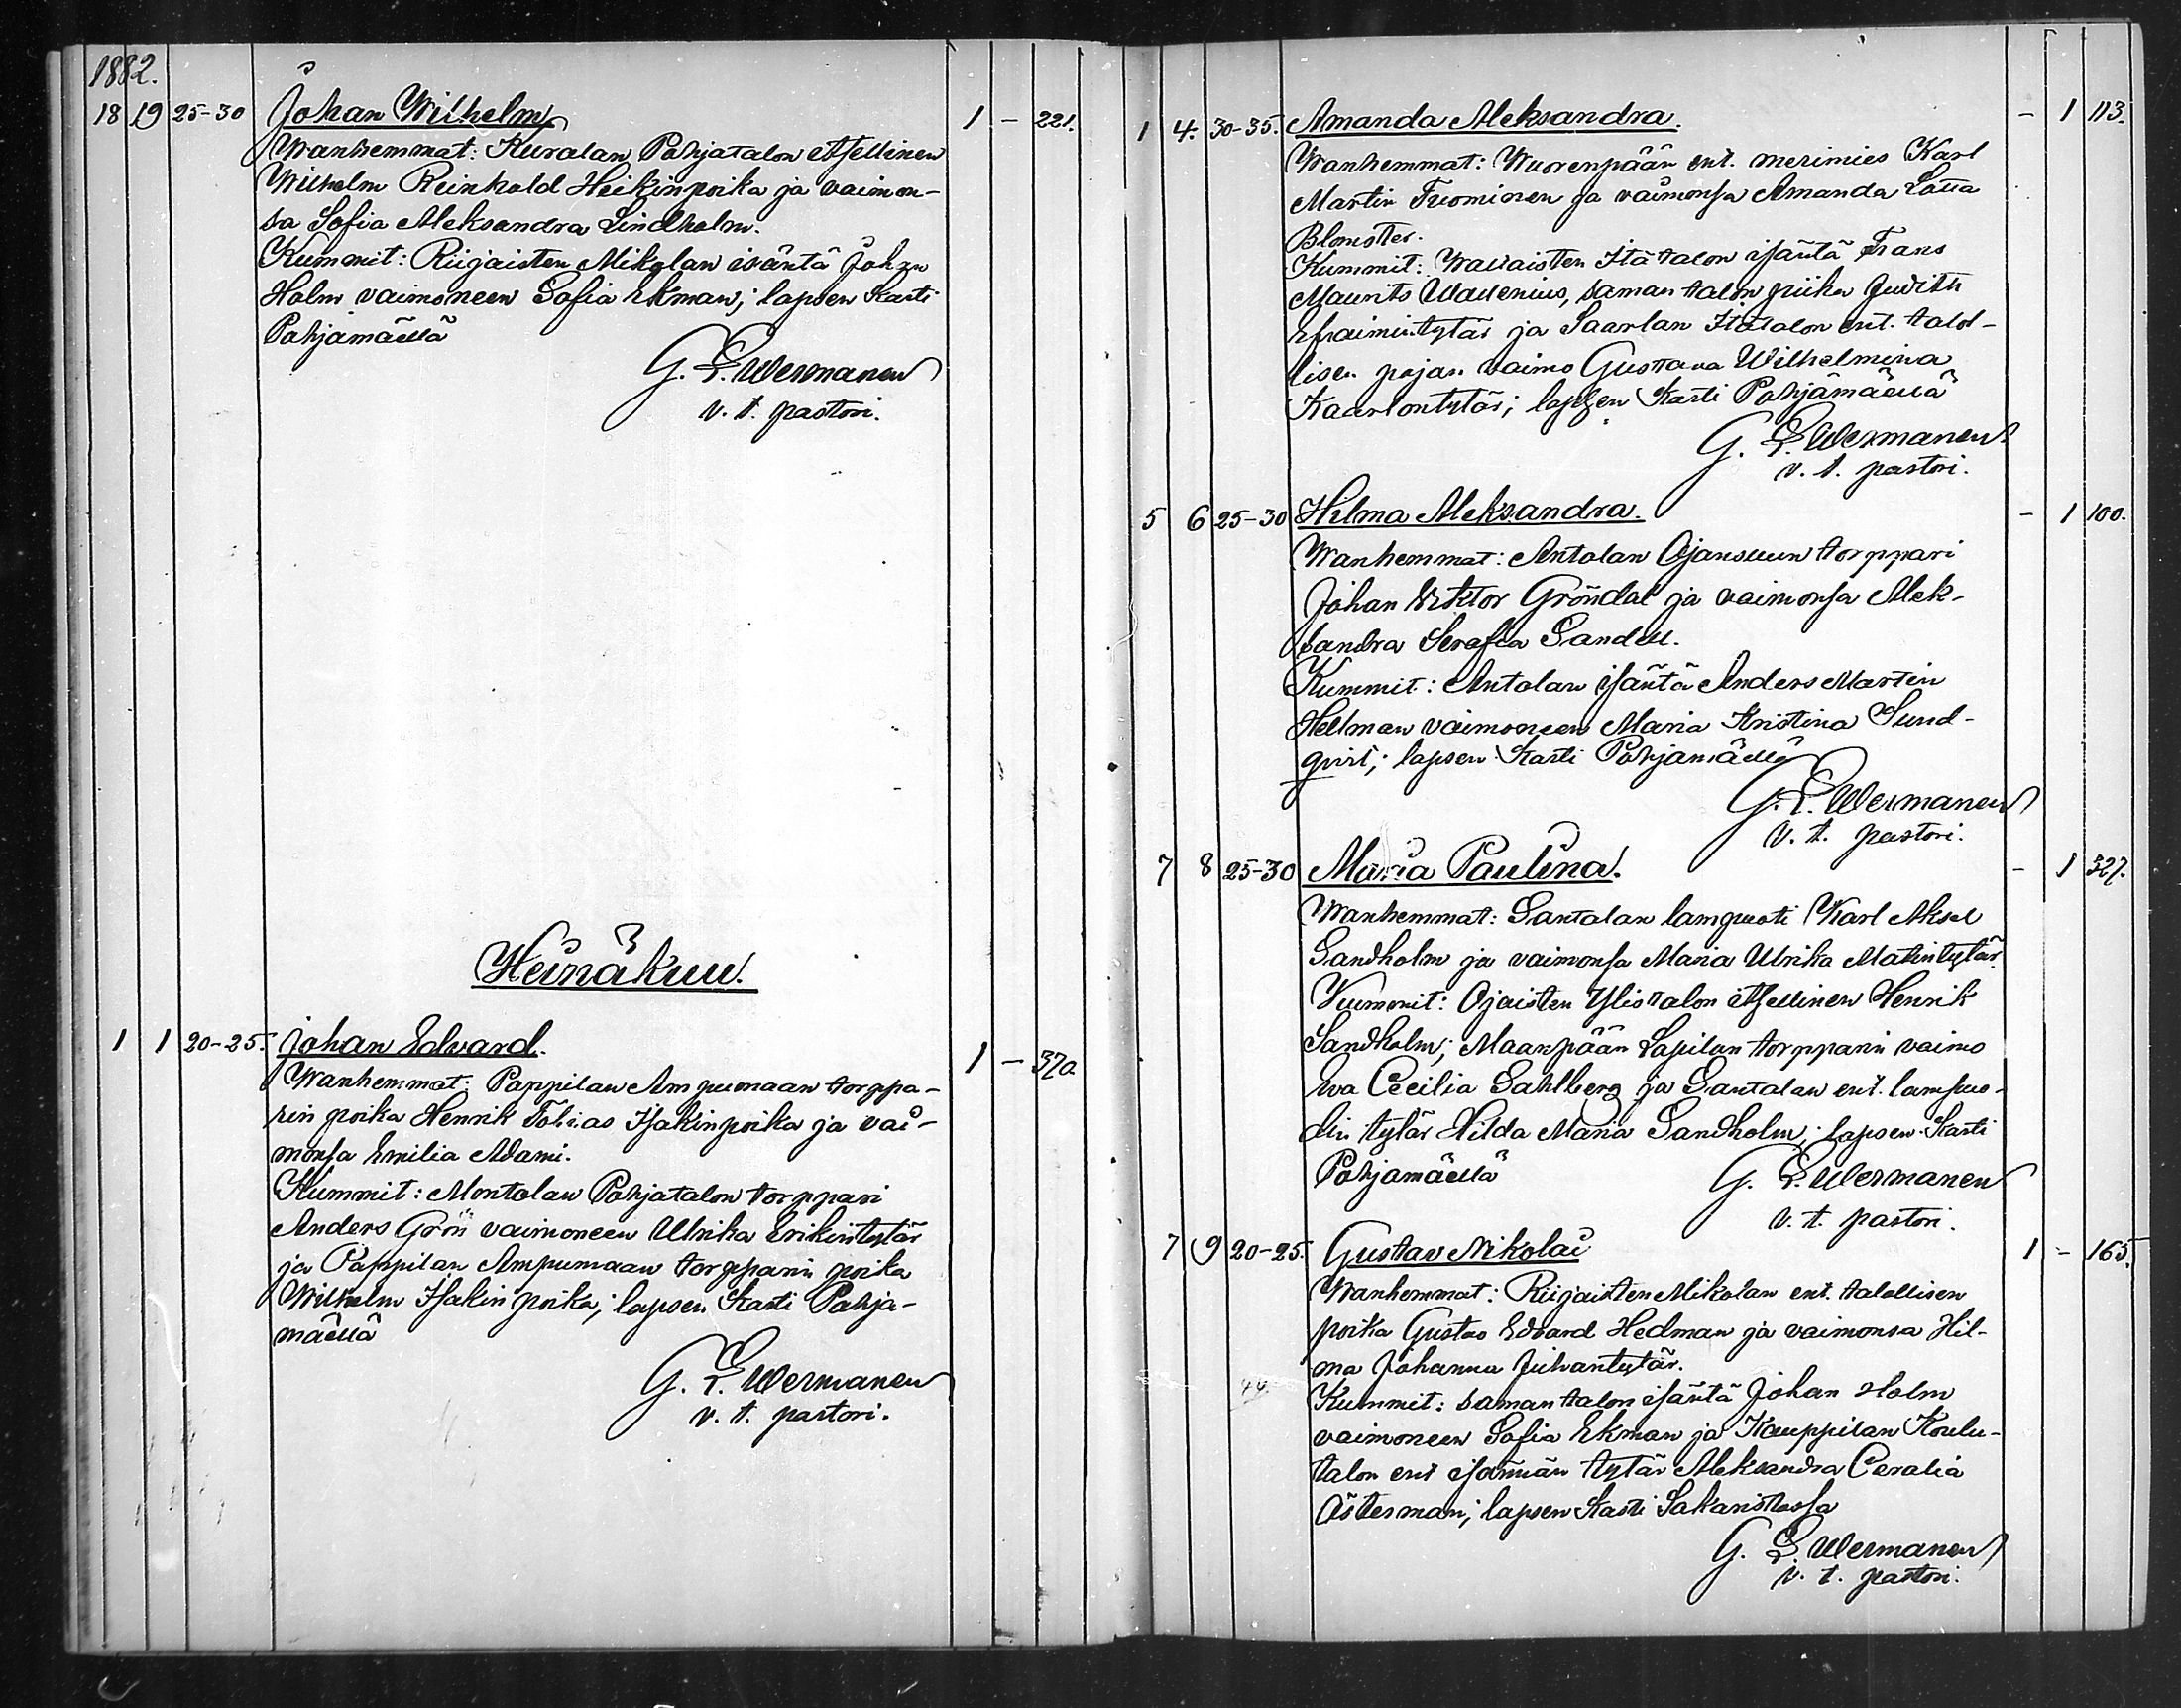 1882.
18 19 25-30 Johan Wilhelm 1 - 221.
Wanhemmat: Kuralan Pohjatalon itsellinen
Wilhelm Reinhold Heikinpoika ja vaimon-
sa Sofia Aleksandra Lindholm.
Kummit: Riijaisten Mikolan isäntä Johan
Holm vaimoneen Sofia Ekman; lapsen kasti
Pohjamäellä
G. E. Wermanen
v. t. pastori.
Heinäkuu.
1 1 20-25. Johan Edvard. 1 - 370.
Wanhemmat: Pappilan Ampumaan torppa-
rin poika Henrik Tobias Isakinpoika ja vai-
monsa Emilia Adami.
Kummit: Montolan Pohjatalon torppari
Anders Grön vaimoneen Ulrika Erikintytär
ja Pappilan Ampumaan torpparin poika
Wilhelm Isakinpoika; lapsen kasti Pohja-
mäellä
G. E. Wermanen
v. t. pastori.
1 4. 30-35. Amanda Aleksandra. - 1 113.
Wanhemmat: Wuorenpään ent. merimies Karl
Martin Tuominen ja vaimonsa Amanda Lotta
Blomster.
Kummit: Wallaisten Itätalon isäntä Frans
Maurits Wallenius, saman talon piika Judith
Efraimintytär ja Saarlan Itätalon ent. talol-
lisen pojan vaimo Gustava Wilhelmina
Kaarlontytär; lapsen kasti Pohjamäellä
G. E. Wermanen
v. t. pastori.
5 6 25-30 Hilma Aleksandra. - 1 100.
Wanhemmat: Antolan Ojansuun torppari
Johan Viktor Gröndal ja vaimonsa Alek-
sandra Serafia Sandell.
Kummit: Antolan isäntä Anders Martin
Hellman vaimoneen Maria Kristina Sund-
qvist; lapsen kasti Pohjamäellä
G. E. Wermanen
v. t. pastori.
7 8 25-30 Maria Paulina. - 1 327.
Wanhemmat: Santalan lampuoti Karl Aksel
Sandholm ja vaimonsa Maria Ulrika Matintytär.
Kummit: Ojaisten Ylistalon itsellinen Henrik
Sandholm; Maanpään Lapilan torpparin vaimo
Eva Cecilia Sahlberg ja Santalan ent. lampuo-
din tytär Hilda Maria Sandholm; lapsen kasti
Pohjamäellä
G. E. Wermanen
v. t. pastori.
7 9 20-25. Gustav Nikolai 1 - 165.
Wanhemmat: Riijaisten Mikolan ent. talollisen
poika Gustav Edvard Hedman ja vaimonsa Hil-
ma Johanna Juhantytär.
Kummit: saman talon isäntä Johan Holm
vaimoneen Sofia Ekman ja Kauppilan Koulu-
talon ent isännän tytär Aleksandra Ceralia
Österman; lapsen kasti Sakaristossa
G. E. Wermanen
v. t. pastori.